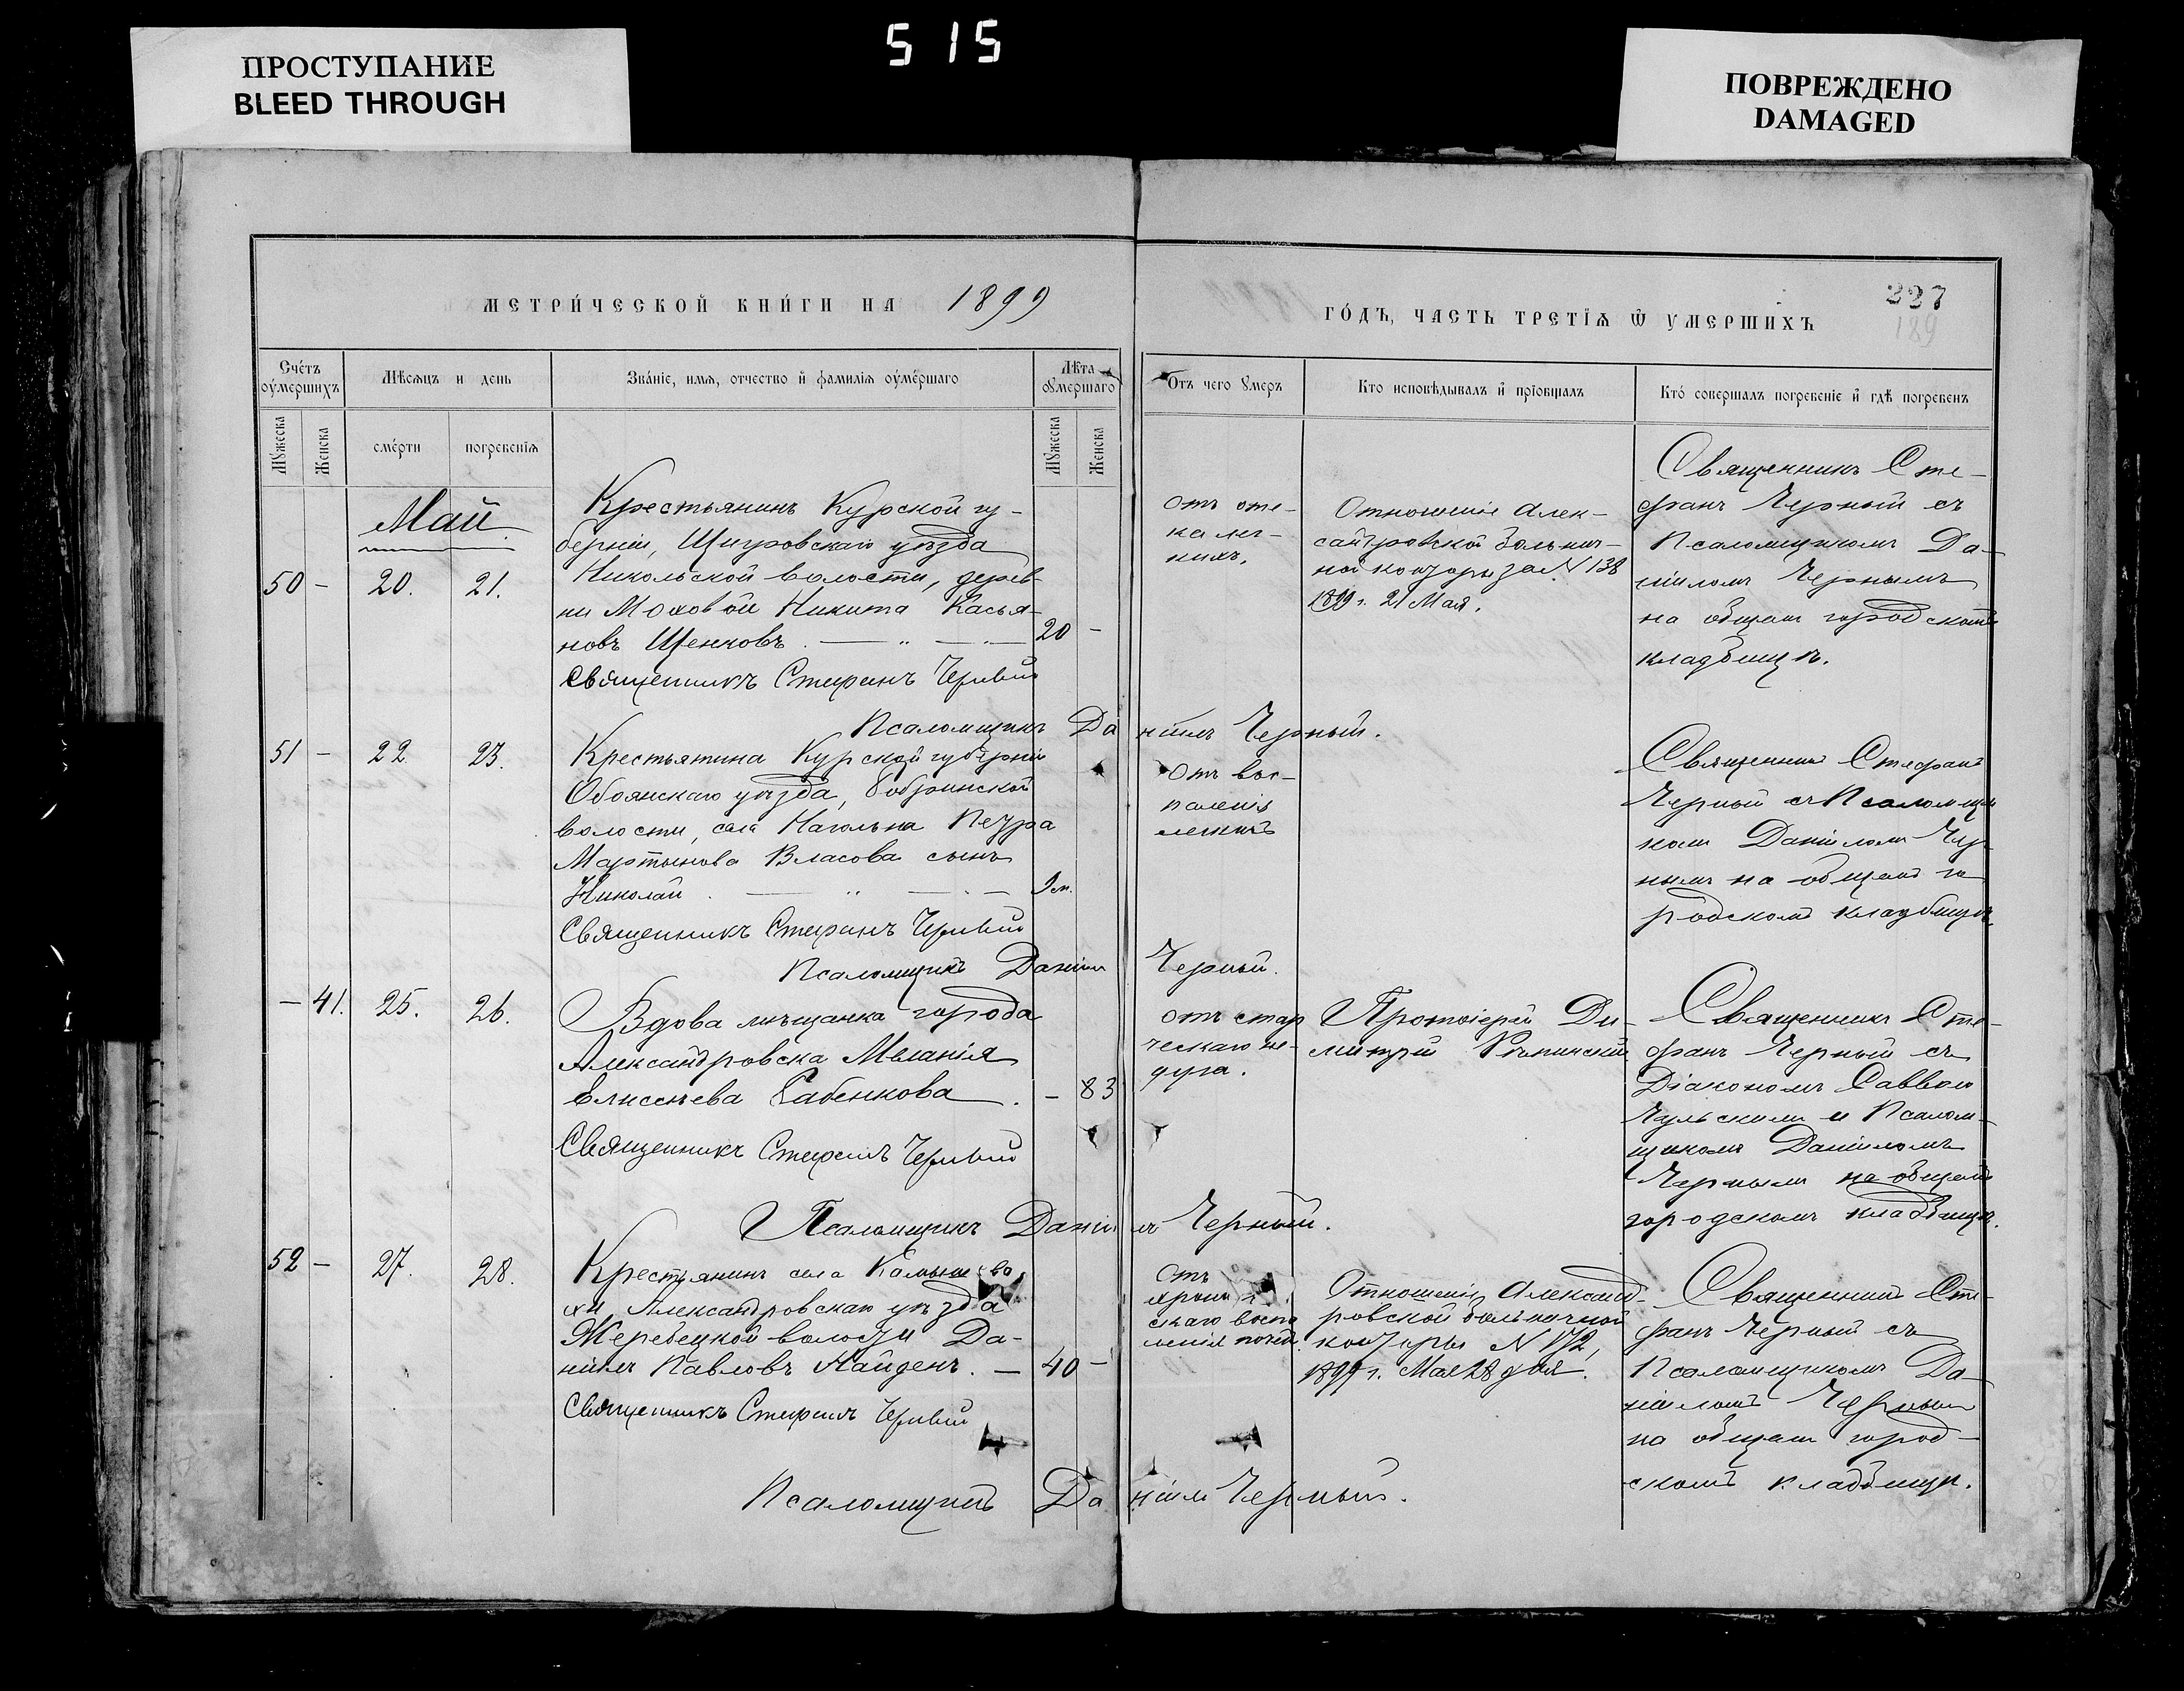 515
ПРОСТУПАНИЕ
BLEED THROUGH
ПОВРЕЖДЕНО
DAMAGED
МЕТРИ́ЧЕСКОЙ КНИ́ГИ НА 1899
ГО́ДЪ, ЧАСТЬ ТРЕТЇѦ Ѿ УМЕРШИХЪ
227
189
Сче́тъ оу́мершихъ
Мѣсѧцъ и день
Зва́нїе, имѧ, отчество и҆ фамилїѧ оу҆ме́ршаго
Лѣта оумершаго
Отъ чего ꙋмеръ
Кто исповѣдывалъ и҆ прїобщалъ
Кто́ совершалъ погребенїе и҆ гдѣ̀ погребенъ
Мꙋжеска
Женска
сме́рти
погребенїѧ
Мꙋжеска
Женска
Май
50 - 20. 21.
Крестьянинъ Курской гу-
берніи, Щигровскаго уѣзда
Никольской волости, дерев-
ни Моховой Никита Касья-
новъ Щенковъ. 20 -
Священникъ Стефанъ Черный
Псаломщикъ Даніилъ Черный.
отъ оте-
ка лег-
кихъ.
Отношеніе Алек-
сандровской больнич-
ной конторы за N 138
1899 г. 21 Мая.
Священникъ Сте-
фанъ Черный съ
Псаломщикомъ Да-
ніиломъ Чернымъ
на общемъ городскомъ
кладбищѣ.
51 - 22 23.
Крестьянина Курской губерніи
Обоянскаго уѣзда,
волости, села Нагольна Петра
Мартынова Власова сынъ
Николай.
Священникъ Стефанъ Черный
Псаломщикъ Даніилъ Черный.
Отъ вос-
паленія
легкихъ
Священникъ Стефанъ
Черный съ Псаломщи
комъ Даніиломъ Чер-
нымъ на общемъ го
родскомъ кладбищѣ.
- 41. 25. 26.
Вдова мѣщанка города
Александровска Меланія
Елисеева Сабенкова. - 83
Священникъ Стефанъ Черный
Псаломщикъ Даніилъ Черный.
отъ стар
ческаго не-
дуга.
Протоіерей Ди-
митрій Рѣпинскій
Священникъ Сте-
фанъ Черный съ
Діакономъ Саввою
и Псалом-
щикомъ Даніиломъ
Чернымъ на общемъ
городскомъ кладбищѣ.
52 - 27. 28.
Крестьянинъ села Камышева
хи Александровскаго уѣзда
Жеребецкой волости Да-
ніилъ Павловъ Найденъ. - 40 -
Священникъ Стефанъ Черный
Псаломщикъ Даніилъ Черный.
Отъ
скаго воспа
ленія почекъ
Отношеніе Александ-
ровской больничной
конторы N 172,
1899 г. Мая 28 дня.
Священникъ Сте-
фанъ Черный съ
Псаломщикомъ Да-
ніиломъ Чернымъ
на общемъ город-
скомъ кладбищѣ.